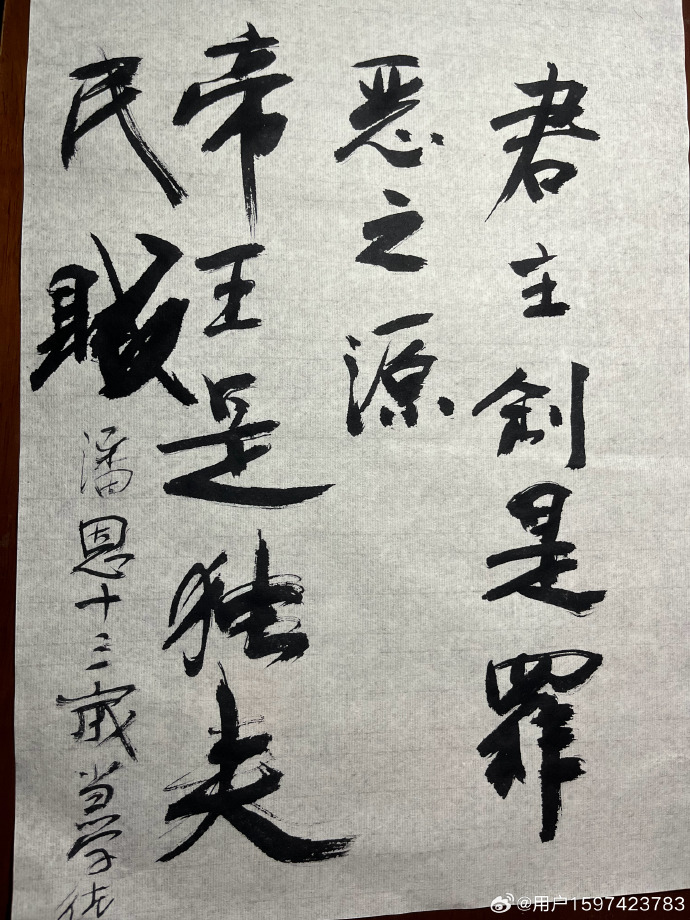 君主制是罪
恶之源
帝王是独夫
民賊
潘恩十三歲当学徒
@用户1597423783